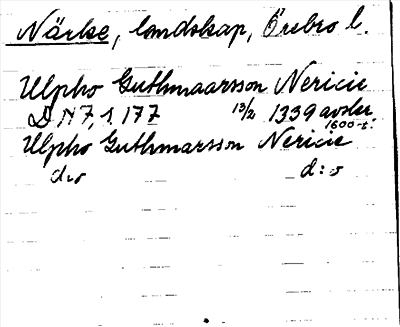 Närke, landskap, Örebro l.
Ulpho Guthmaarsson Nericie
DN 7, s. 177 13/2 1339 avskr
1600-t.
Ulpho Guthmarsson Nericie
d:o d:o